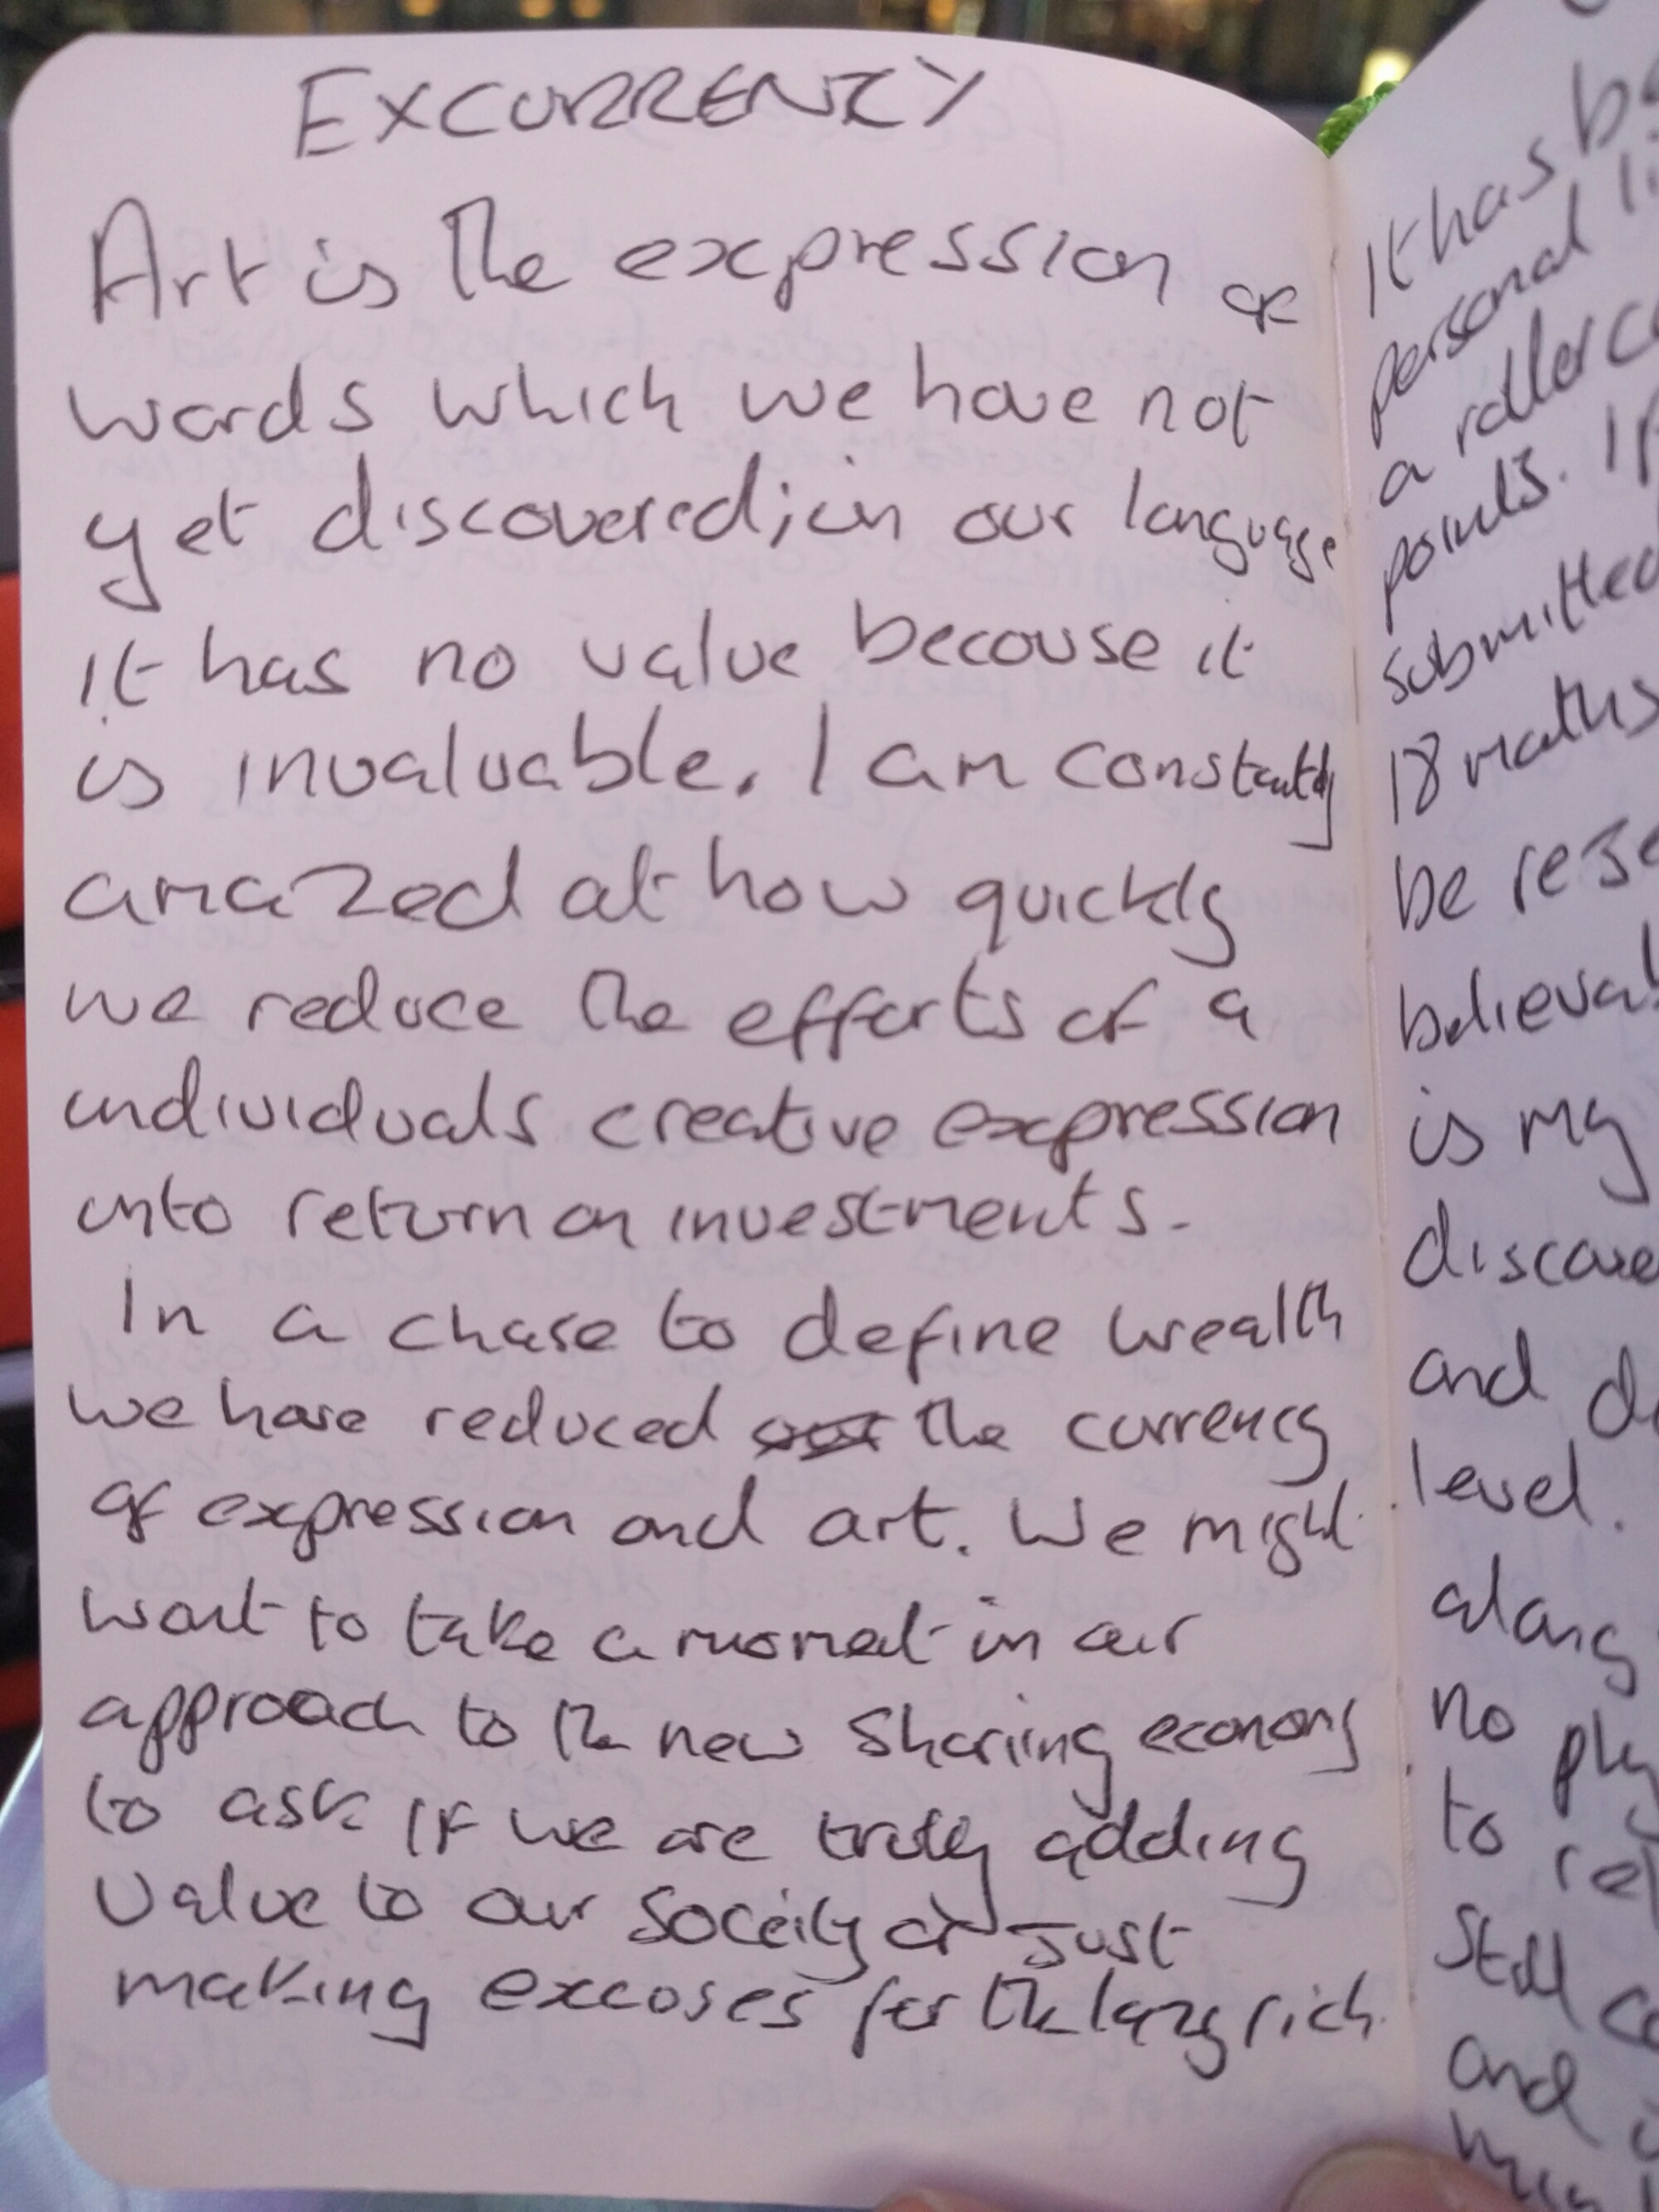 EXCURRENCY
Art is the expression of
words which we have not
yet discovered; in our language
it has no value because it
is invaluable. I am constantly
amazed at how quickly
we reduce the efforts of a
individuals creative expression
into return on investments.
In a chase to define wealth
we have reduced the currency
of expression and art. We might
want to take a moment in our
approach to the new Shariing economy
to ask if we are truly adding
value to our Soceity or Just
making excuses for the lazy rich.
It has
personal
a roller
points. If
submitted
18 maths
be
is my
and
level.
along
no
to
Still
and